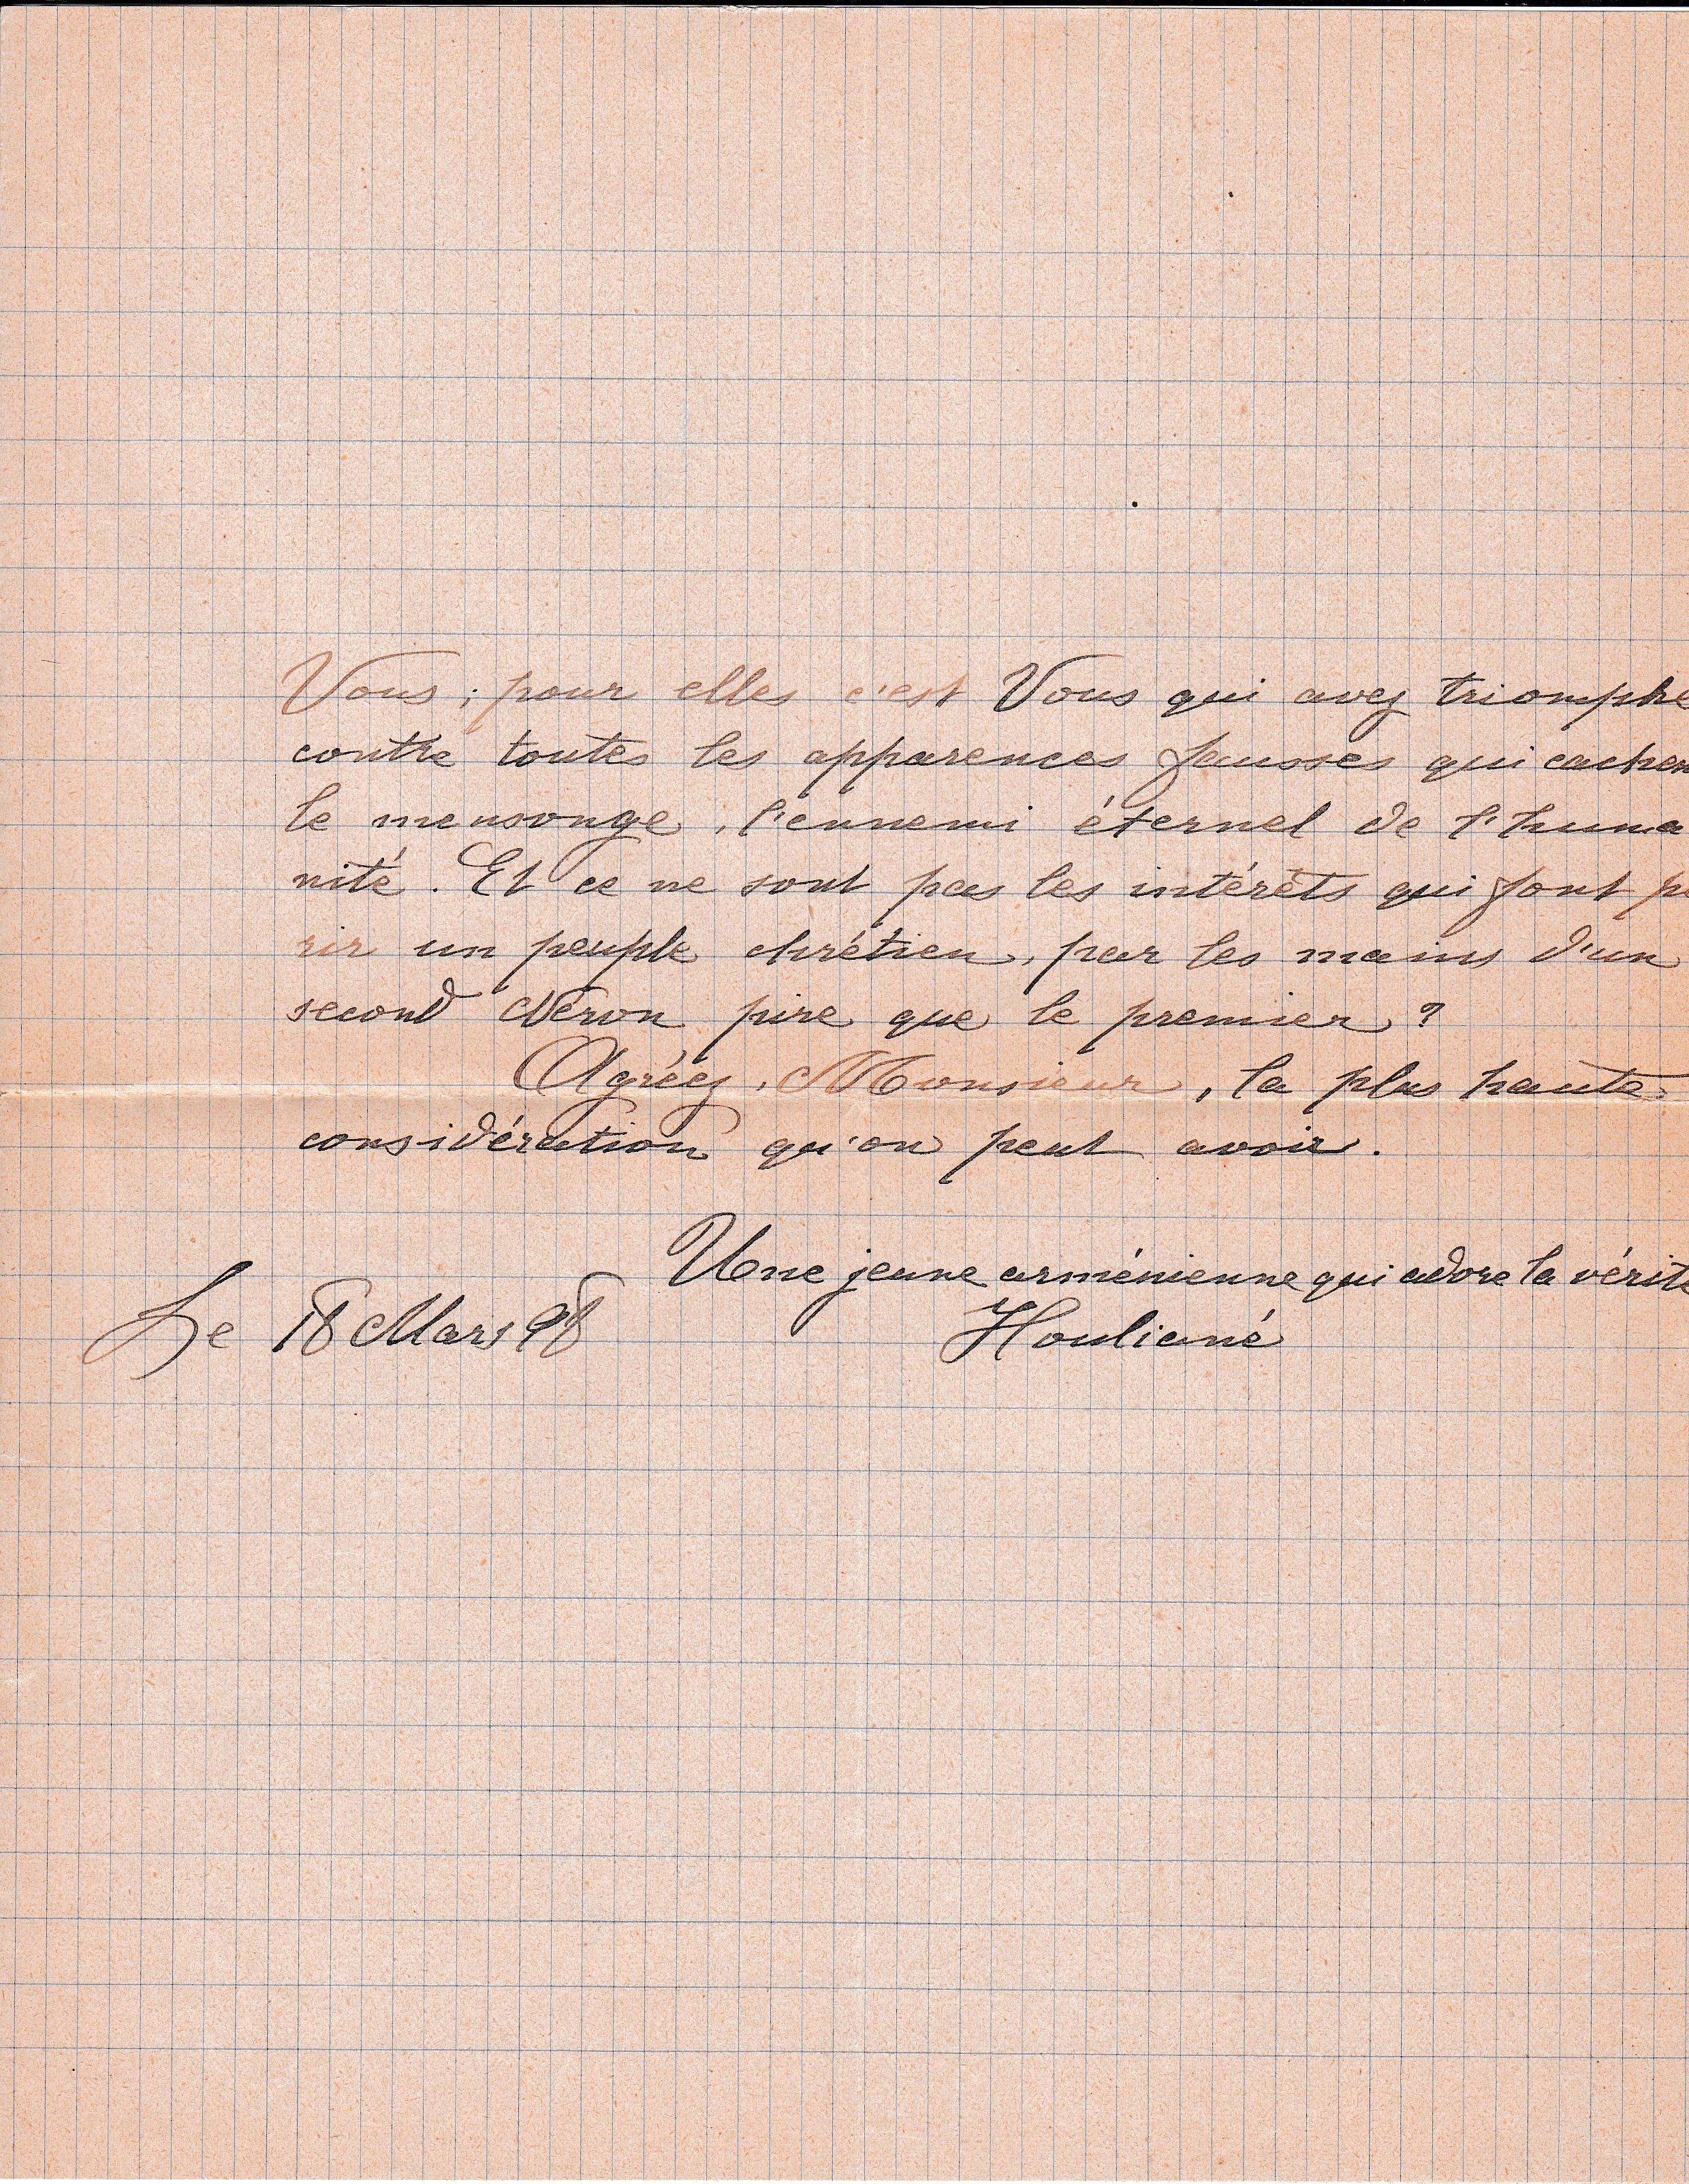 Vous ; pour elles c'est Vous qui avez triomphé
contre toutes les apparences fausses qui cachen
le mensonge, l'ennemi éternel de l'huma
nité. Et ce ne sont pas les intérêts qui font pé
rir un peuple chrétien, par les mains d'un
second Néron pire que le premier ?
Agréez, Monsieur, la plus haute
considération qu'on peut avoir.
Une jeune arménienne qui adore la vérité
Le 18 Mars 98
Houliané